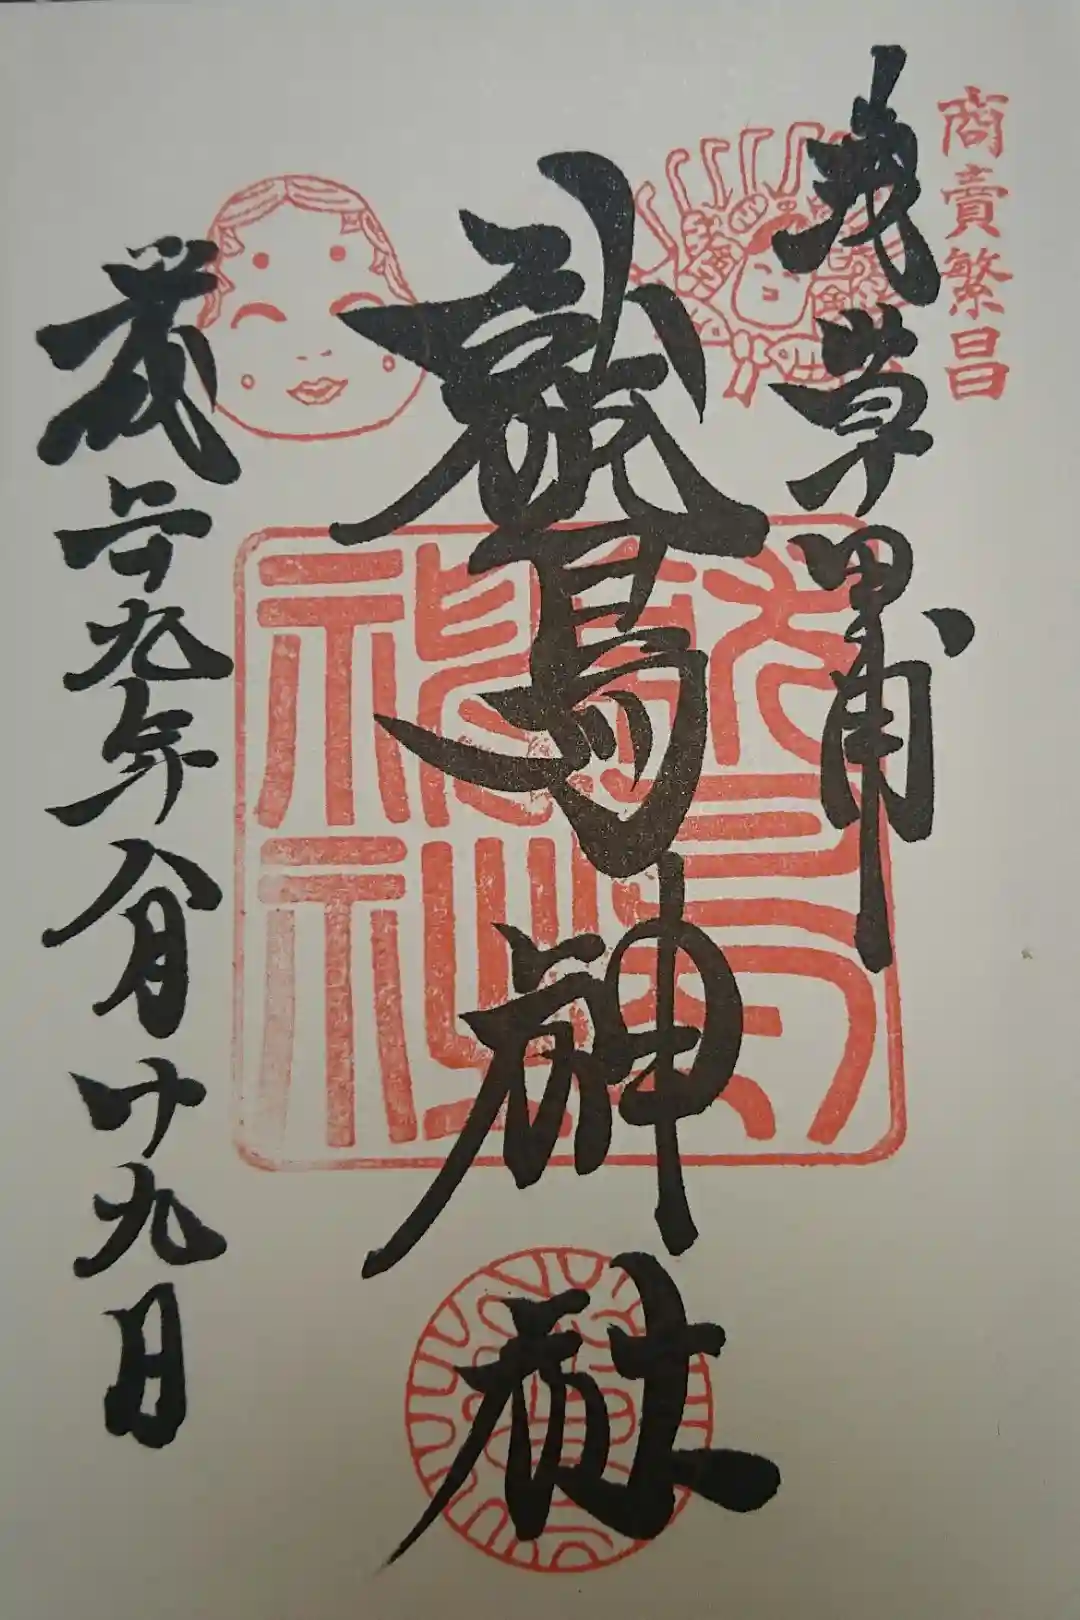 商賣繁昌
浅草田甫
鷲神社
平成二十九年八月廿九日
鷲神社